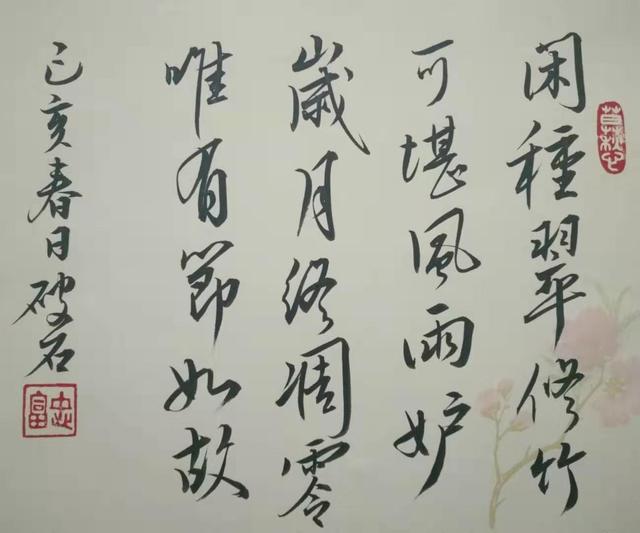 闲種翠修竹
可堪風雨妒
歲月終凋零
唯有節如故
己亥春日破石